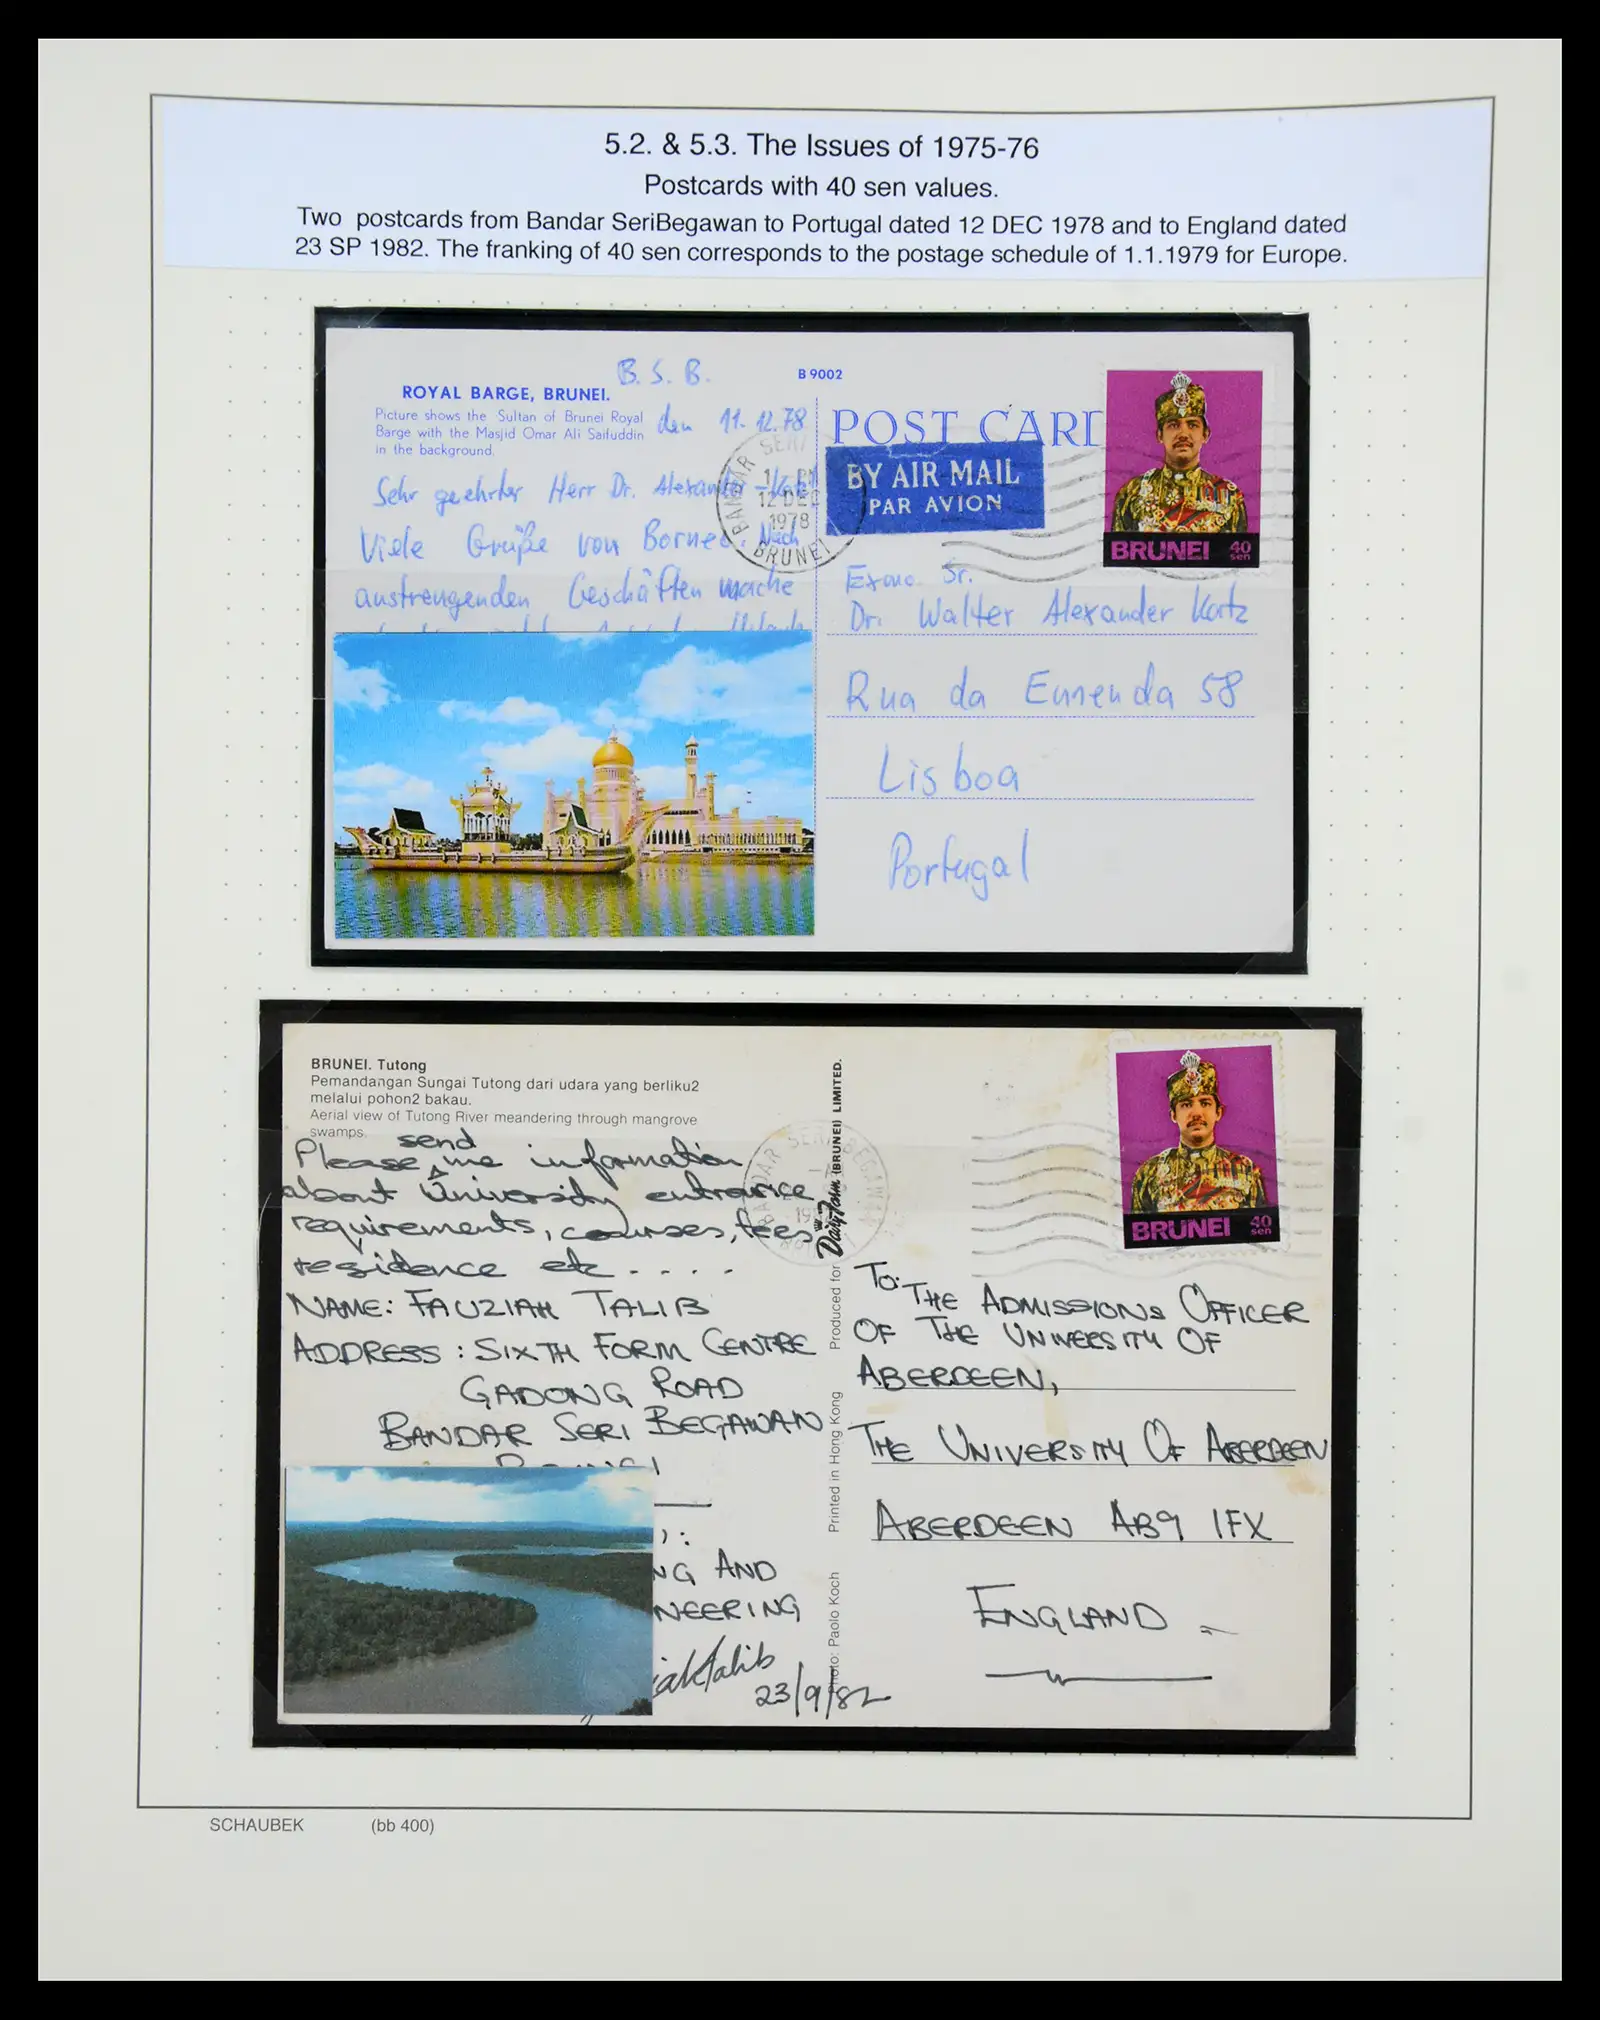 5.2. & 5.3. The Issues of 1975-76
Postcards with 40 sen values.
Two postcards from Bandar SeriBegawan to Portugal dated 12 DEC 1978 and to England dated
23 SP 1982. The franking of 40 sen corresponds to the postage schedule of 1.1.1979 for Europe.
B. S. B.
B 9002
ROYAL BARGE, BRUNEI.
Picture shows the Sultan of Brunei Royal
Barge with the Masjid Omar Ali Saifuddin
in the background.
den 11.12.78
Sehr geehrter Herr Dr. Alexander-Katz!
Viele Grüße von Borneo. Nach
anstrengenden Geschäften mache
POST CARD
BY AIR MAIL
PAR AVION
BANDAR SERI
12 DEC
1978
BRUNEI
BRUNEI 40
sen
Exmo. Sr.
Dr. Walter Alexander Katz
Rua da Emenda 58
Lisboa
Portugal
BRUNEI. Tutong
Pemandangan Sungai Tutong dari udara yang berliku2
melalui pohon2 bakau.
Aerial view of Tutong River meandering through mangrove
swamps.
Please send me information
about University entrance
requirements, courses, fees
residence etc....
NAME: FAUZIAH TALIB
ADDRESS: SIXTH FORM CENTRE
GADONG ROAD
BANDAR SERI BEGAWAN
):
NG AND
NEERING
23/9/82
BANDAR SERI BEGAWAN
Photo: Paolo Koch Printed in Hong Kong Produced for Dairy Farm (BRUNEI) LIMITED.
BRUNEI 40
sen
To: THE ADMISSIONS OFFICER
OF THE UNIVERSITY OF
ABERDEEN,
THE UNIVERSITY OF ABERDEEN
ABERDEEN AB9 1FX
ENGLAND
SCHAUBEK (bb 400)